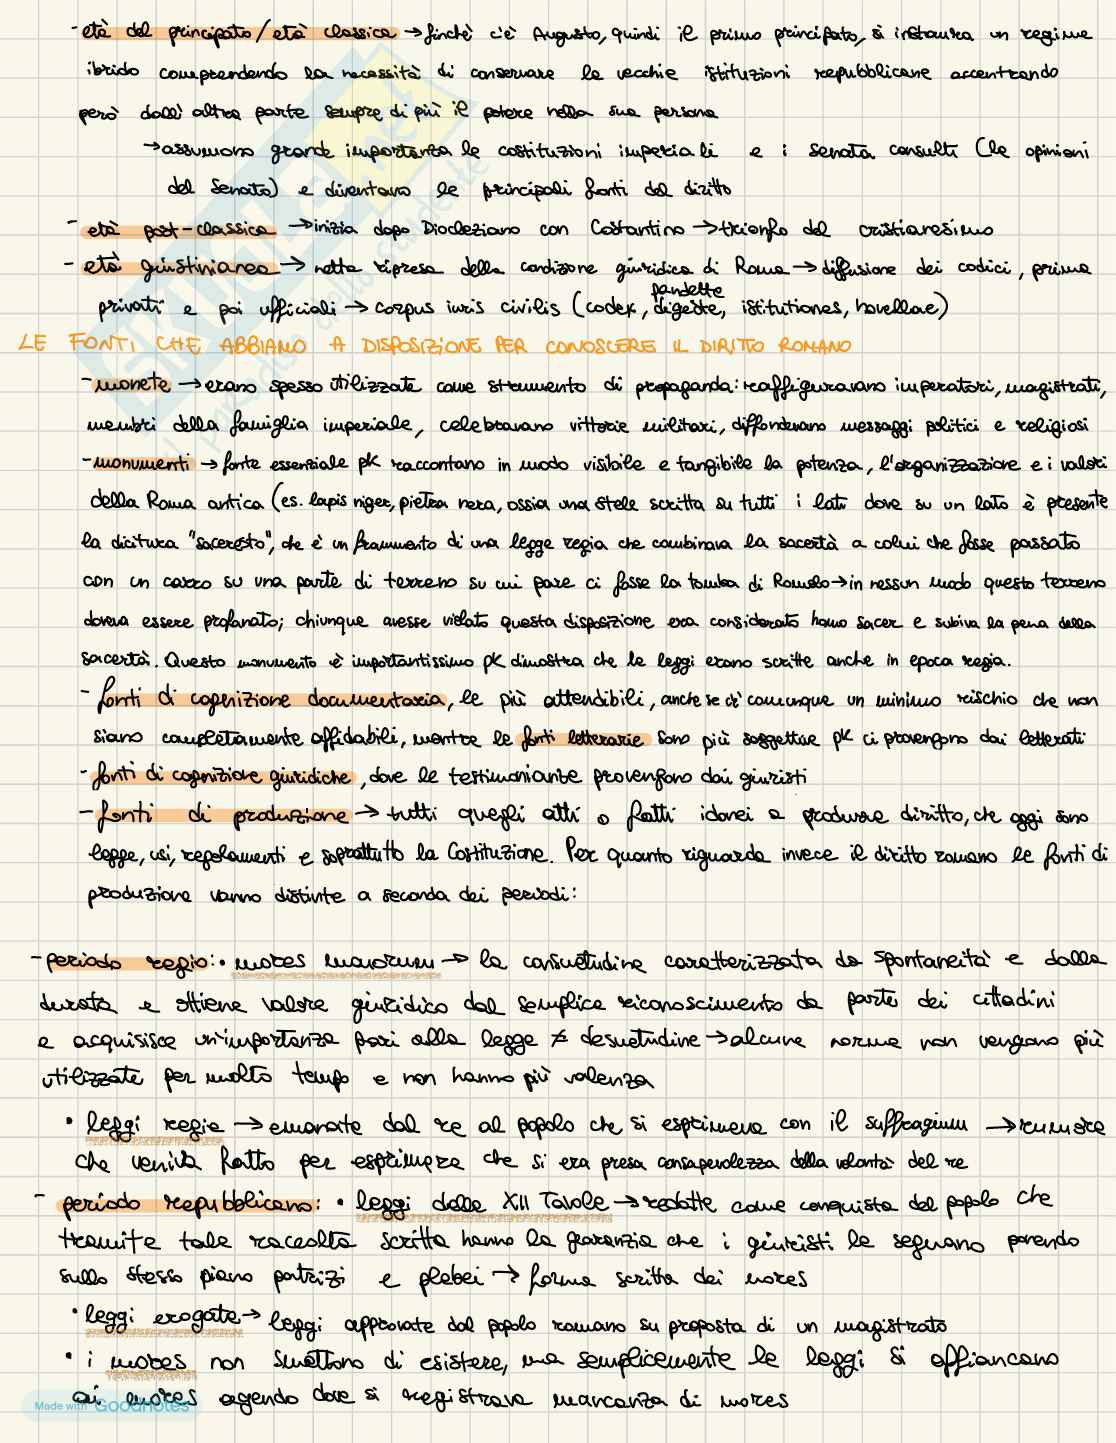 - età del principato/età classica → finchè c'è Augusto, quindi il primo principato, si instaura un regime
ibrido comprendendo la necessità di conservare le vecchie istituzioni repubblicane accentrando
però dall'altra parte sempre di più il potere nella sua persona
→ assumono grande importanza le costituzioni imperiali e i senata consulti (le opinioni
del Senato) e diventano le principali fonti del diritto
- età post-classica → inizia dopo Diocleziano con Costantino → trionfo del cristianesimo
- età giustinianea → netta ripresa della condizione giuridica di Roma → diffusione dei codici, prima
pandette
privati e poi ufficiali → corpus iuris civilis (codex, digeste, istitutiones, novellae)
LE FONTI CHE ABBIAMO A DISPOSIZIONE PER CONOSCERE IL DIRITTO ROMANO
- monete → erano spesso utilizzate come strumento di propaganda: raffiguravano imperatori, magistrati,
membri della famiglia imperiale, celebravano vittorie militari, diffondevano messaggi politici e religiosi
- monumenti → fonte essenziale pk raccontano in modo visibile e tangibile la potenza, l'organizzazione e i valori
della Roma antica (es. lapis niger, pietra nera, ossia una stele scritta su tutti i lati dove su un lato è presente
la dicitura "saceresto", che è un frammento di una legge regia che combinava la sacertà a colui che fosse passato
con un carro su una parte di terreno su cui pare ci fosse la tomba di Romolo → in nessun modo questo terreno
doveva essere profanato; chiunque avesse violato questa disposizione era considerato homo sacer e subiva la pena della
sacertà. Questo monumento è importantissimo pk dimostra che le leggi erano scritte anche in epoca regia.
- fonti di cognizione documentaria, le più attendibili, anche se c'è comunque un minimo rischio che non
siano completamente affidabili, mentre le fonti letterarie sono più soggettive pk ci provengono dai letterati
- fonti di cognizione giuridiche, dove le testimonianze provengono dai giuristi
- fonti di produzione → tutti quegli atti o fatti idonei a produrre diritto, che oggi sono
legge, usi, regolamenti e soprattutto la Costituzione. Per quanto riguarda invece il diritto romano le fonti di
produzione vanno distinte a seconda dei periodi:
- periodo regio: • mores maiorum → la consuetudine caratterizzata da spontaneità e dalla
durata e ottiene valore giuridico dal semplice riconoscimento da parte dei cittadini
e acquisisce un'importanza pari alla legge ≠ desuetudine → alcune norme non vengono più
utilizzate per molto tempo e non hanno più valenza
• leggi regie → emanate dal re al popolo che si esprimeva con il suffragium → rumore
che veniva fatto per esprimere che si era presa consapevolezza della volontà del re
- periodo repubblicano: • leggi delle XII Tavole → redatte come conquista del popolo che
tramite tale raccolta scritta hanno la garanzia che i giuristi le seguano ponendo
sullo stesso piano patrizi e plebei → forma scritta dei mores
• leggi erogate → leggi approvate dal popolo romano su proposta di un magistrato
• i mores non smettono di esistere, ma semplicemente le leggi si affiancano
ai mores agendo dove si registrava mancanza di mores
Made with Goodnotes